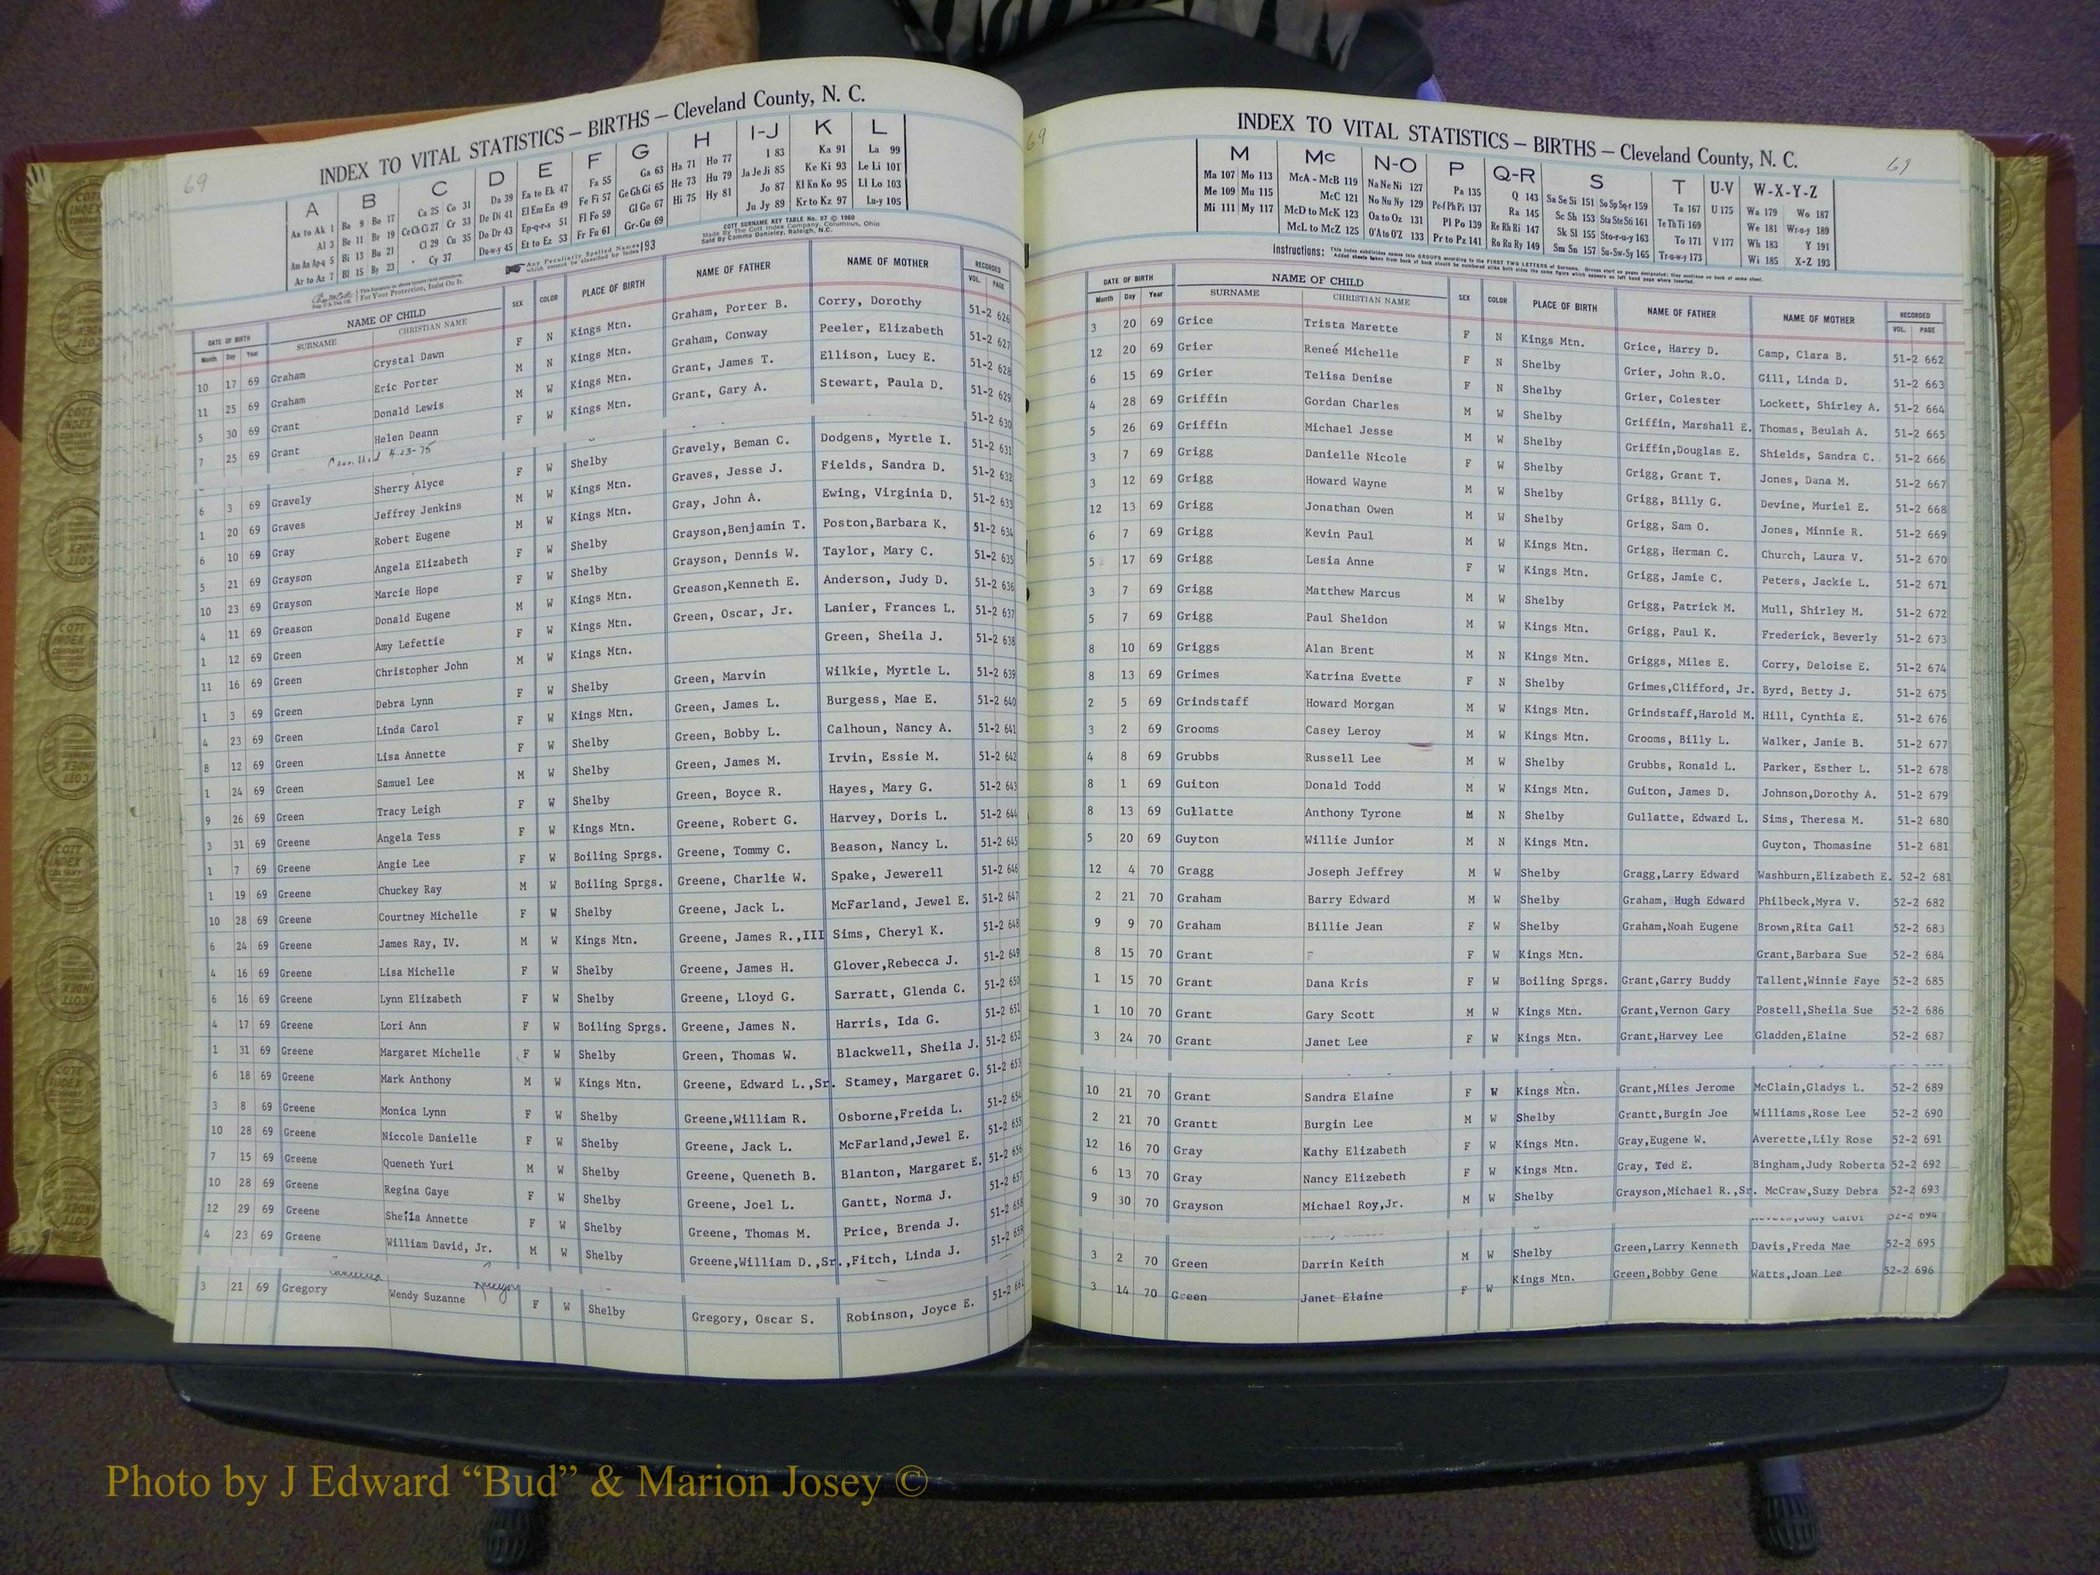 69
INDEX TO VITAL STATISTICS — BIRTHS — Cleveland County, N. C.
A B C D E F G H I-J K L
Aa to Ak 1 Ba 9 Bo 17 Ca 25 Co 31 Da 39 Ea to Ek 47 Fa 55 Ga 63 Ha 71 Ho 77 I 83 Ka 91 La 99
Al 3 Be 11 Br 19 Ce Ch Ci 27 Cr 33 De Di 41 El Em En 49 Fe Fi 57 Ge Gh Gi 65 He 73 Hu 79 Ja Je Ji 85 Ke Ki 93 Le Li 101
Am An Ap-q 5 Bi 13 Bu 21 Cl 29 Cu 35 Do Dr 43 Ep-q-r-s 51 Fl Fo 59 Gl Go 67 Hi 75 Hy 81 Jo 87 Kl Kn Ko 95 Ll Lo 103
Ar to Az 7 Bl 15 By 23 Cy 37 Du-w-y 45 Et to Ez 53 Fr Fu 61 Gr-Gu 69 Ju Jy 89 Kr to Kz 97 Lu-y 105
Any Peculiarly Spelled Names which cannot be classified by Index 193
COTT SURNAME KEY TABLE No. 97 © 1960
Made By The Cott Index Company, Columbus, Ohio
For Your Protection, Insist On It.
DATE OF BIRTH NAME OF CHILD SEX COLOR PLACE OF BIRTH NAME OF FATHER NAME OF MOTHER RECORDED
Month Day Year SURNAME CHRISTIAN NAME VOL. PAGE
10 17 69 Graham Crystal Dawn F N Kings Mtn. Graham, Porter B. Corry, Dorothy 51-2 626
11 25 69 Graham Eric Porter M N Kings Mtn. Graham, Conway Peeler, Elizabeth 51-2 627
5 30 69 Grant Donald Lewis M W Kings Mtn. Grant, James T. Ellison, Lucy E. 51-2 628
7 25 69 Grant Helen Deann F W Kings Mtn. Grant, Gary A. Stewart, Paula D. 51-2 629
4-23-75 51-2 630
6 3 69 Gravely Sherry Alyce F W Shelby Gravely, Beman C. Dodgens, Myrtle I. 51-2 631
1 20 69 Graves Jeffrey Jenkins M W Kings Mtn. Graves, Jesse J. Fields, Sandra D. 51-2 632
6 10 69 Gray Robert Eugene M W Kings Mtn. Gray, John A. Ewing, Virginia D. 51-2 633
5 21 69 Grayson Angela Elizabeth F W Shelby Grayson,Benjamin T. Poston,Barbara K. 51-2 634
10 23 69 Grayson Marcie Hope F W Shelby Grayson, Dennis W. Taylor, Mary C. 51-2 635
4 11 69 Greason Donald Eugene M W Kings Mtn. Greason,Kenneth E. Anderson, Judy D. 51-2 636
1 12 69 Green Amy Lefettie F W Kings Mtn. Green, Oscar, Jr. Lanier, Frances L. 51-2 637
11 16 69 Green Christopher John M W Kings Mtn. Green, Sheila J. 51-2 638
1 3 69 Green Debra Lynn F W Shelby Green, Marvin Wilkie, Myrtle L. 51-2 639
4 23 69 Green Linda Carol F W Kings Mtn. Green, James L. Burgess, Mae E. 51-2 640
8 12 69 Green Lisa Annette F W Shelby Green, Bobby L. Calhoun, Nancy A. 51-2 641
1 24 69 Green Samuel Lee M W Shelby Green, James M. Irvin, Essie M. 51-2 642
9 26 69 Green Tracy Leigh F W Shelby Green, Boyce R. Hayes, Mary G. 51-2 643
3 31 69 Greene Angela Tess F W Kings Mtn. Greene, Robert G. Harvey, Doris L. 51-2 644
1 7 69 Greene Angie Lee F W Boiling Sprgs. Greene, Tommy C. Beason, Nancy L. 51-2 645
1 19 69 Greene Chuckey Ray M W Boiling Sprgs. Greene, Charlie W. Spake, Jewerell 51-2 646
10 28 69 Greene Courtney Michelle F W Shelby Greene, Jack L. McFarland, Jewel E. 51-2 647
6 24 69 Greene James Ray, IV. M W Kings Mtn. Greene, James R.,III Sims, Cheryl K. 51-2 648
4 16 69 Greene Lisa Michelle F W Shelby Greene, James H. Glover,Rebecca J. 51-2 649
6 16 69 Greene Lynn Elizabeth F W Shelby Greene, Lloyd G. Sarratt, Glenda C. 51-2 650
4 17 69 Greene Lori Ann F W Boiling Sprgs. Greene, James N. Harris, Ida G. 51-2 651
1 31 69 Greene Margaret Michelle F W Shelby Green, Thomas W. Blackwell, Sheila J. 51-2 652
6 18 69 Greene Mark Anthony M W Kings Mtn. Greene, Edward L.,Sr. Stamey, Margaret G. 51-2 653
3 8 69 Greene Monica Lynn F W Shelby Greene,William R. Osborne,Freida L. 51-2 654
10 28 69 Greene Niccole Danielle F W Shelby Greene, Jack L. McFarland,Jewel E. 51-2 655
7 15 69 Greene Queneth Yuri M W Shelby Greene, Queneth B. Blanton, Margaret E. 51-2 656
10 28 69 Greene Regina Gaye F W Shelby Greene, Joel L. Gantt, Norma J. 51-2 657
12 29 69 Greene Sheila Annette F W Shelby Greene, Thomas M. Price, Brenda J. 51-2 658
4 23 69 Greene William David, Jr. M W Shelby Greene,William D.,Sr., Fitch, Linda J. 51-2 659
3 21 69 Gregory Wendy Suzanne F W Shelby Gregory, Oscar S. Robinson, Joyce E. 51-2 661
69
69
INDEX TO VITAL STATISTICS — BIRTHS — Cleveland County, N. C.
M Mc N-O P Q-R S T U-V W-X-Y-Z
Ma 107 Mo 113 McA - McB 119 Na Ne Ni 127 Pa 135 Q 143 Sa Se Si 151 So Sp Sq-r 159 Ta 167 U 175 Wa 179 Wo 187
Me 109 Mu 115 McC 121 No Nu Ny 129 Pe-f Ph Pi 137 Ra 145 Sc Sh 153 Sta Ste Sti 161 Te Th Ti 169 We 181 Wr-u-y 189
Mi 111 My 117 McD to McK 123 Oa to Oz 131 Pl Po 139 Re Rh Ri 147 Sk Sl 155 Sto-r-u-y 163 To 171 V 177 Wh 183 Y 191
McL to McZ 125 O'A to O'Z 133 Pr to Pz 141 Ro Ru Ry 149 Sm Sn 157 Su-Sw-Sy 165 Tr-u-w-y 173 Wi 185 X-Z 193
Instructions: This index subdivides names into GROUPS according to the FIRST TWO LETTERS of Surname.
DATE OF BIRTH NAME OF CHILD SEX COLOR PLACE OF BIRTH NAME OF FATHER NAME OF MOTHER RECORDED
Month Day Year SURNAME CHRISTIAN NAME VOL. PAGE
3 20 69 Grice Trista Marette F N Kings Mtn. Grice, Harry D. Camp, Clara B. 51-2 662
12 20 69 Grier Reneé Michelle F N Shelby Grier, John R.O. Gill, Linda D. 51-2 663
6 15 69 Grier Telisa Denise F N Shelby Grier, Colester Lockett, Shirley A. 51-2 664
4 28 69 Griffin Gordan Charles M W Shelby Griffin, Marshall E. Thomas, Beulah A. 51-2 665
5 26 69 Griffin Michael Jesse M W Shelby Griffin,Douglas E. Shields, Sandra C. 51-2 666
3 7 69 Grigg Danielle Nicole F W Shelby Grigg, Grant T. Jones, Dana M. 51-2 667
3 12 69 Grigg Howard Wayne M W Shelby Grigg, Billy G. Devine, Muriel E. 51-2 668
12 13 69 Grigg Jonathan Owen M W Shelby Grigg, Sam O. Jones, Minnie R. 51-2 669
6 7 69 Grigg Kevin Paul M W Kings Mtn. Grigg, Herman C. Church, Laura V. 51-2 670
5 17 69 Grigg Lesia Anne F W Kings Mtn. Grigg, Jamie C. Peters, Jackie L. 51-2 671
3 7 69 Grigg Matthew Marcus M W Shelby Grigg, Patrick M. Mull, Shirley M. 51-2 672
5 7 69 Grigg Paul Sheldon M W Kings Mtn. Grigg, Paul K. Frederick, Beverly 51-2 673
8 10 69 Griggs Alan Brent M N Kings Mtn. Griggs, Miles E. Corry, Deloise E. 51-2 674
8 13 69 Grimes Katrina Evette F N Shelby Grimes,Clifford, Jr. Byrd, Betty J. 51-2 675
2 5 69 Grindstaff Howard Morgan M W Kings Mtn. Grindstaff,Harold M. Hill, Cynthia E. 51-2 676
3 2 69 Grooms Casey Leroy M W Kings Mtn. Grooms, Billy L. Walker, Janie B. 51-2 677
4 8 69 Grubbs Russell Lee M W Shelby Grubbs, Ronald L. Parker, Esther L. 51-2 678
8 1 69 Guiton Donald Todd M W Kings Mtn. Guiton, James D. Johnson,Dorothy A. 51-2 679
8 13 69 Gullatte Anthony Tyrone M N Shelby Gullatte, Edward L. Sims, Theresa M. 51-2 680
5 20 69 Guyton Willie Junior M N Kings Mtn. Guyton, Thomasine 51-2 681
12 4 70 Gragg Joseph Jeffrey M W Shelby Gragg,Larry Edward Washburn,Elizabeth E. 52-2 681
2 21 70 Graham Barry Edward M W Shelby Graham, Hugh Edward Philbeck,Myra V. 52-2 682
9 9 70 Graham Billie Jean F W Shelby Graham,Noah Eugene Brown,Rita Gail 52-2 683
8 15 70 Grant F W Kings Mtn. Grant,Barbara Sue 52-2 684
1 15 70 Grant Dana Kris F W Boiling Sprgs. Grant,Garry Buddy Tallent,Winnie Faye 52-2 685
1 10 70 Grant Gary Scott M W Kings Mtn. Grant,Vernon Gary Postell,Sheila Sue 52-2 686
3 24 70 Grant Janet Lee F W Kings Mtn. Grant,Harvey Lee Gladden,Elaine 52-2 687
10 21 70 Grant Sandra Elaine F W Kings Mtn. Grant,Miles Jerome McClain,Gladys L. 52-2 689
2 21 70 Grantt Burgin Lee M W Shelby Grantt,Burgin Joe Williams,Rose Lee 52-2 690
12 16 70 Gray Kathy Elizabeth F W Kings Mtn. Gray,Eugene W. Averette,Lily Rose 52-2 691
6 13 70 Gray Nancy Elizebeth F W Kings Mtn. Gray, Ted E. Bingham,Judy Roberta 52-2 692
9 30 70 Grayson Michael Roy,Jr. M W Shelby Grayson,Michael R.,Sr. McCraw,Suzy Debra 52-2 693
52-2 694
3 2 70 Green Darrin Keith M W Shelby Green,Larry Kenneth Davis,Freda Mae 52-2 695
3 14 70 Green Janet Elaine F W Kings Mtn. Green,Bobby Gene Watts,Joan Lee 52-2 696
Photo by J Edward “Bud” & Marion Josey ©